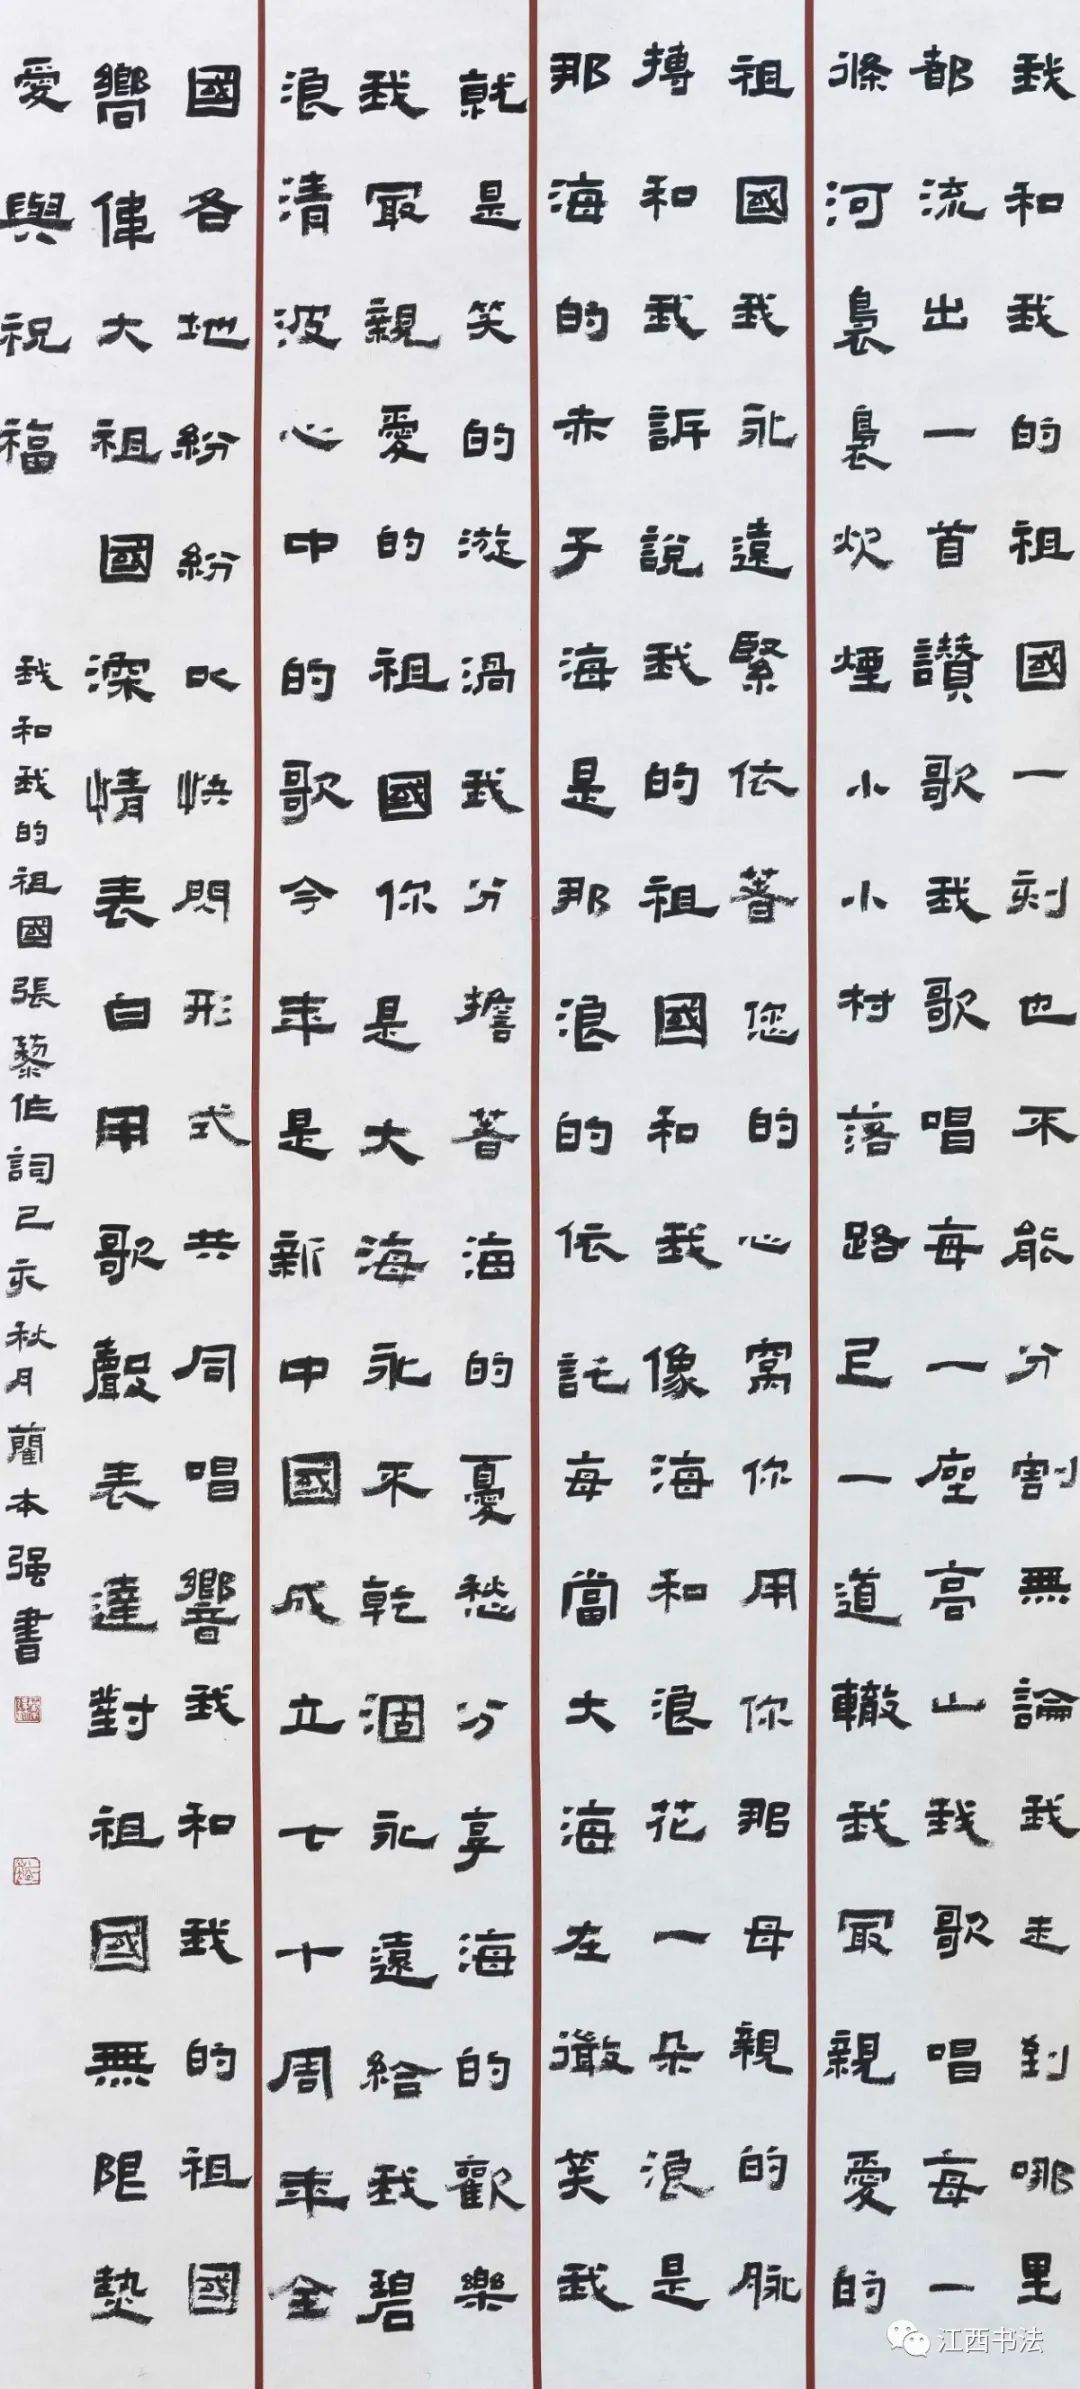 我和我的祖國一刻也不能分割無論我走到哪里
都流出一首讚歌我歌唱每一座高山我歌唱每一
條河裊裊炊煙小小村落路已一道轍我最親愛的
祖國我永遠緊依著您的心窩你用你那母親的脉
搏和我訴說我的祖國和我像海和浪花一朵浪是
那海的赤子海是那浪的依託每當大海在微笑我
就是笑的漩渦我分擔著海的憂愁分享海的歡樂
我最親愛的祖國你是大海永不乾涸永遠給我碧
浪清波心中的歌今年是新中國成立七十周年全
國各地紛紛以快閃形式共同唱響我和我的祖國
嚮偉大祖國深情表白用歌聲表達對祖國無限熱
愛與祝福
我和我的祖國張藜作詞己亥秋月藺本强書
江西书法